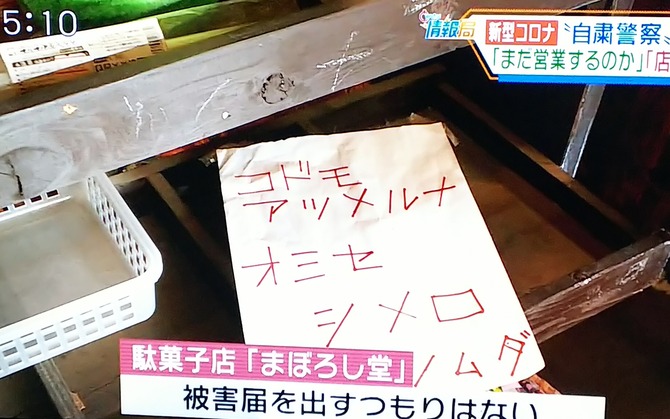 5:10
情報局
新型コロナ "自粛警察"
「まだ営業するのか」「店
コドモ
アツメルナ
オミセ
シメロ
ノムダ
駄菓子店「まぼろし堂」
被害届を出すつもりはない